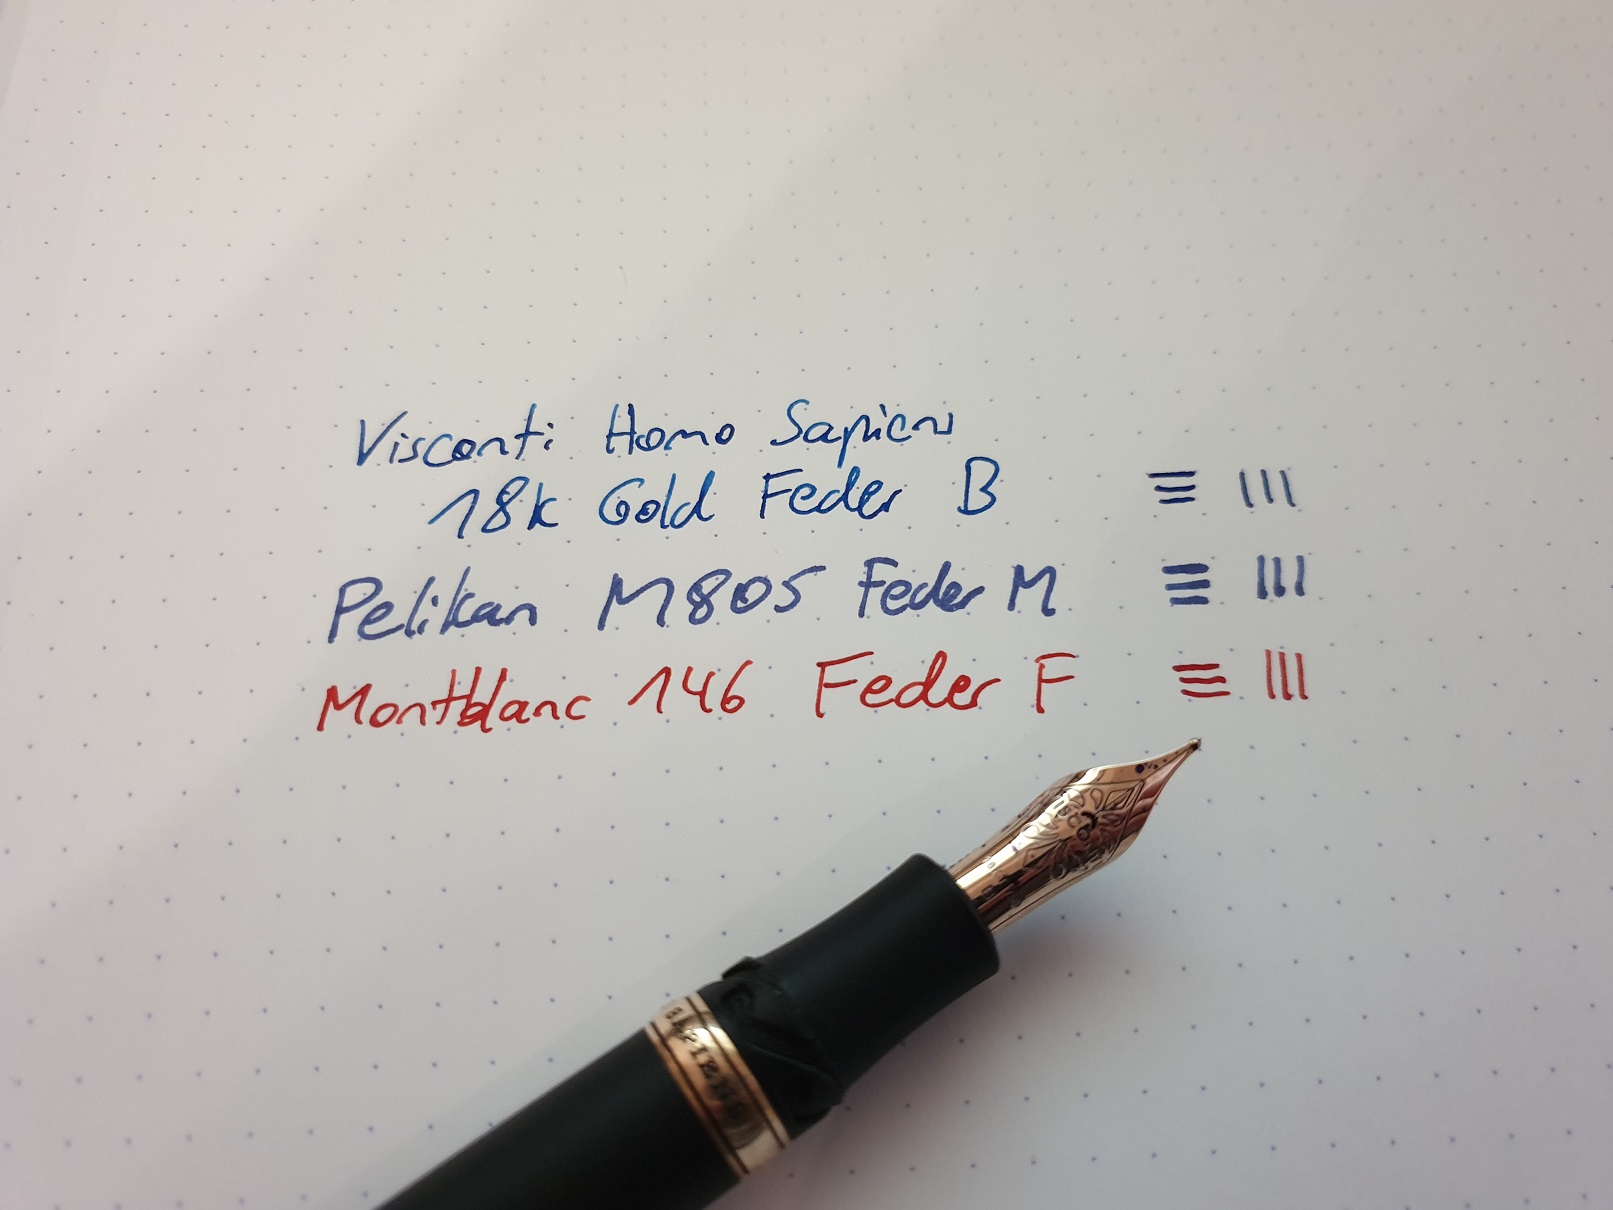 Visconti Homo Sapiens
18k Gold Feder B
Pelikan M805 Feder M
Montblanc 146 Feder F
SAPIENS